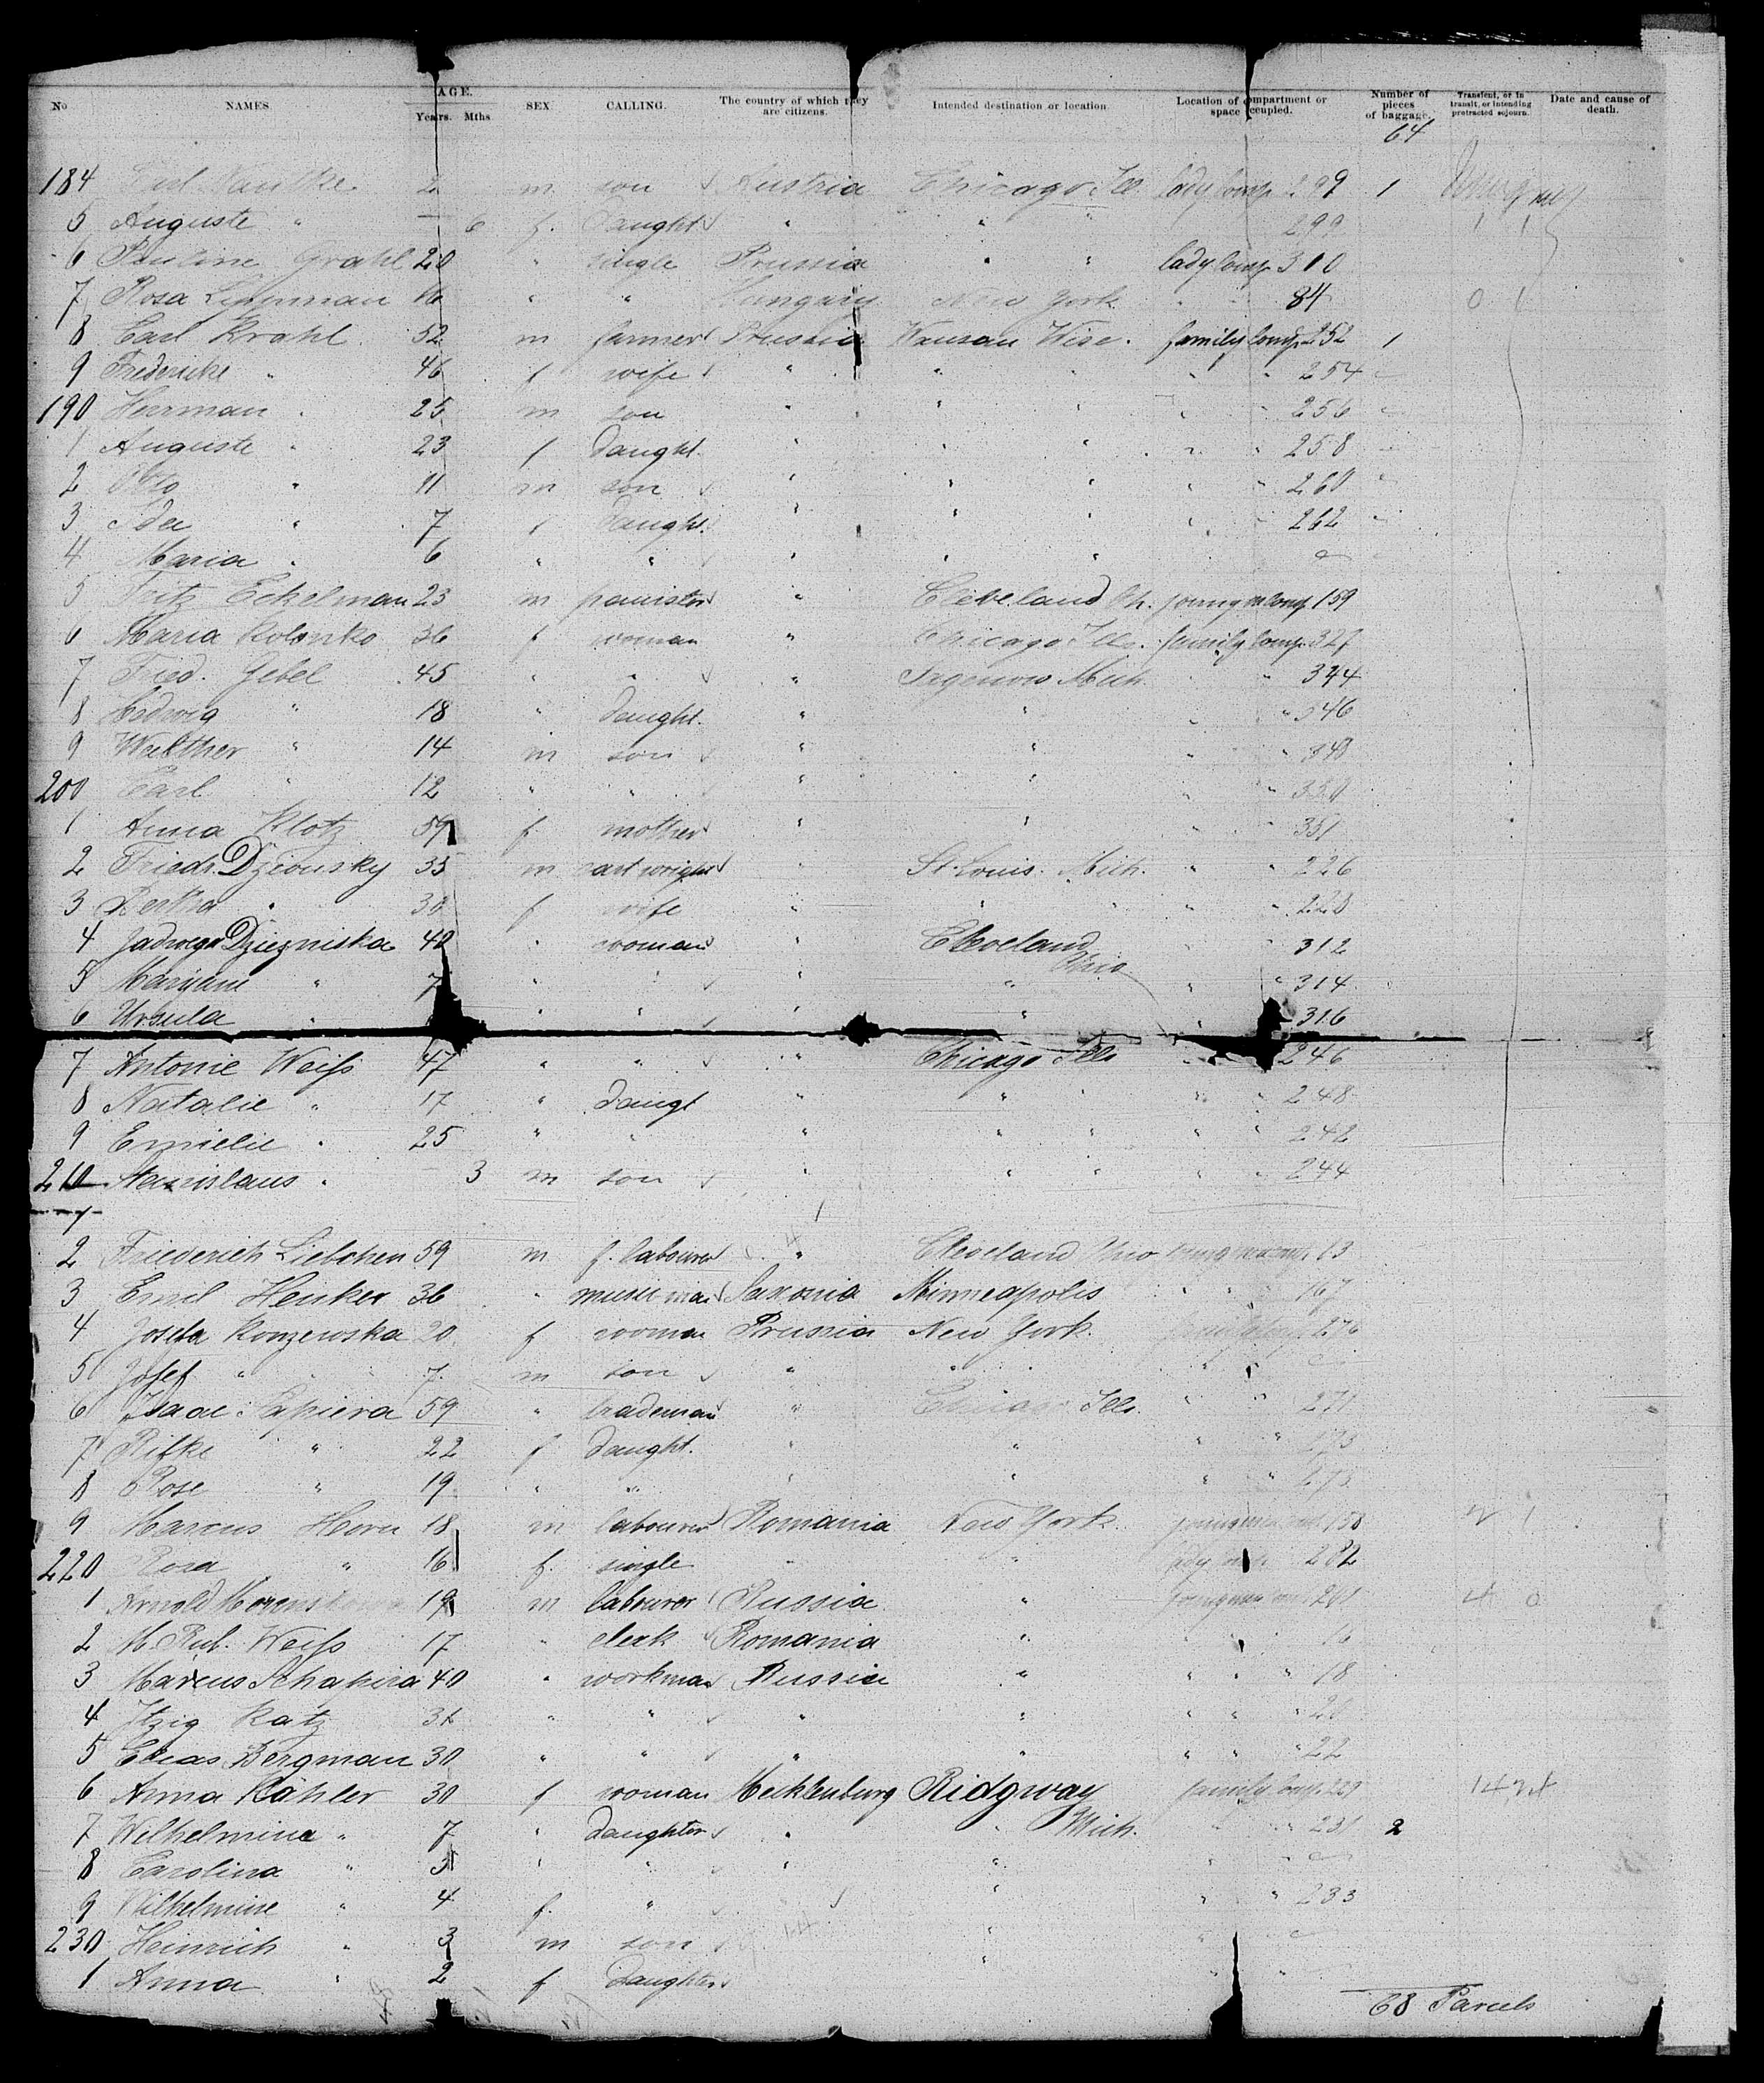 No NAMES AGE. Years. Mths SEX. CALLING. The country of which they are citizens. Intended destination or location Location of compartment or space occupied. Number of pieces of baggage. Transient, or in transit, or intending protracted sojourn. Date and cause of death.
64
184 2 m son Austria Chicago Ill. lady comp. 299 1
5 Auguste " — 6 f. Daught " " " 299
6 Pauline Grahl 20 " single Prussia " " lady comp 310
7 Rosa Lippman 16 " " Hungary New York " 84 0 1
8 Carl Krahl 52 m farmer Prussia Wausau Wisc. family comp. 252 1
9 Friedericke " 46 f wife " " " " " 254
190 Herrman " 25 m son " " " " " 256
1 Auguste " 23 f Daught. " " " " " 258
2 Otto " 11 m son " " " " " 260
3 Ida " 7 f Daught. " " " " " 262
4 Maria " 6 " " " " "
5 Fritz Eckelman 23 m " Cleveland Oh. young m comp. 159
6 Maria Kolonko 36 f woman " Chicago Ills. family comp. 327
7 Fried. Gebel 45 " " " Mich. " " 344
8 Hedwig " 18 " daught. " " " " 346
9 Walther " 14 m son " " " " 348
200 Carl " 12 " " " " " " 350
1 Anna Klotz 59 f. mother " " " " 351
2 Friedr. Dzionsky 35 m cartwright " St. Louis. Mich. " " 226
3 Bertha " 30 f wife " " " " " 228
4 Jadwega Dziezniska 40 " woman " Cleveland " 312
Ohio
5 Maryane " 7 " " " " " " 314
6 Ursula " " " " " " 316
7 Antonie Weiss 47 " " " Chicago Ills " " 246
8 Natalie " 17 " daugt " " " " " 248
9 Emielie " 25 " " " " " " " 242
210 Stanislaus " — 3 m son " " " " " 244
1
2 Friederich Liebchen 59 m f. labourer " Cleveland Ohio 13
3 Emil Henker 36 " musicman Saxonia Minneapolis " " 167
4 Josefa Konzewska 20 f woman Prussia New York. family comp. 276
5 Josef " 7. m son " " " "
6 Isaac Sapiera 59 " trademan " Chicago Ills. " " 271
7 Rifke " 22 f daught. " " " " 273
8 Rose " 19 " " " " " " 275
9 Marcus Hern 18 m labourer Romania New York. 158
220 Rosa " 16 f. single " " lady comp. 282
1 Arnold 19 m labourer Russia " 201 4 0
2 M. Rub. Weiss 17 " clerk Romania " " " 16
3 Marcus Schapira 40 " workman Russia " " " " 18
4 Itzig Katz " " " " " " "
5 Elias Bergman 30 " " " " " " " 22
6 Anna Kähler 30 f woman Mecklenburg Ridgway family comp. 229
7 Wilhelmina " 7 " daughter " " Mich. " " 231 2
8 Carolina " 5 " " " " " "
9 Wilhelmine " 4 f. " " " " 233
230 Heinrich " 3 m son " "
1 Anna " 2 f daughter " " "
68 Parcels